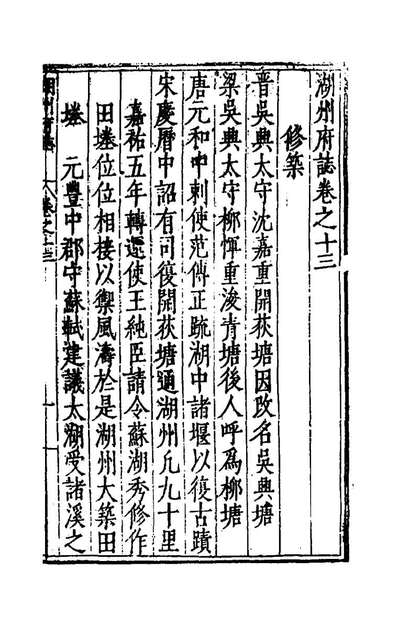 湖州府誌卷之十三
修築
晋吳興太守沈嘉重開荻塘因改名吳興塘
梁吳興太守柳惲重浚青塘後人呼為柳塘
唐元和中刺使范傳正䟽湖中諸堰以復古蹟
宋慶曆中詔有司復開荻塘通湖州凢九十里
嘉祐五年轉運使王純臣請令蘇湖秀修作
田塍位位相接以禦風濤於是湖州大築田
塍　元豐中郡守蘇軾建議太湖受諸溪之
湖州府誌　卷之十三　一